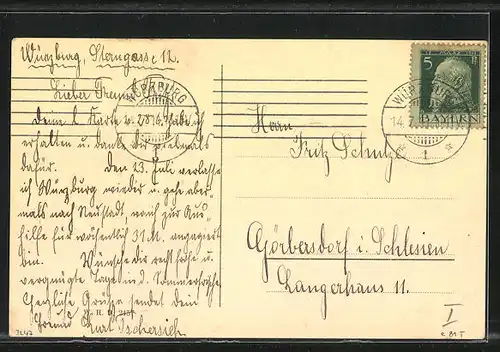 Würzburg, Sterngasse 12.
Lieber Freund
Deine l. Karte v. 28/6. habe ich
erhalten u. danke dir vielmals
dafür. Den 23. Juli verlasse
ich Würzburg wieder u. gehe aber-
mals nach Neustadt, wo ich zur Aus-
hilfe für wöchentlich 31 M. engagiert
bin. Wünsche dir recht frohe u.
vergnügte Tage in d. Sommerfrische.
Herzliche Grüsse sendet dein
Freund Kurt Tschersich
WÜRZBURG
Herrn
Fritz Schulze
Görbersdorf i. Schlesien
Langerhaus 11.
5 Pf
BAYERN
WÜRZBURG
14.7.
1
I